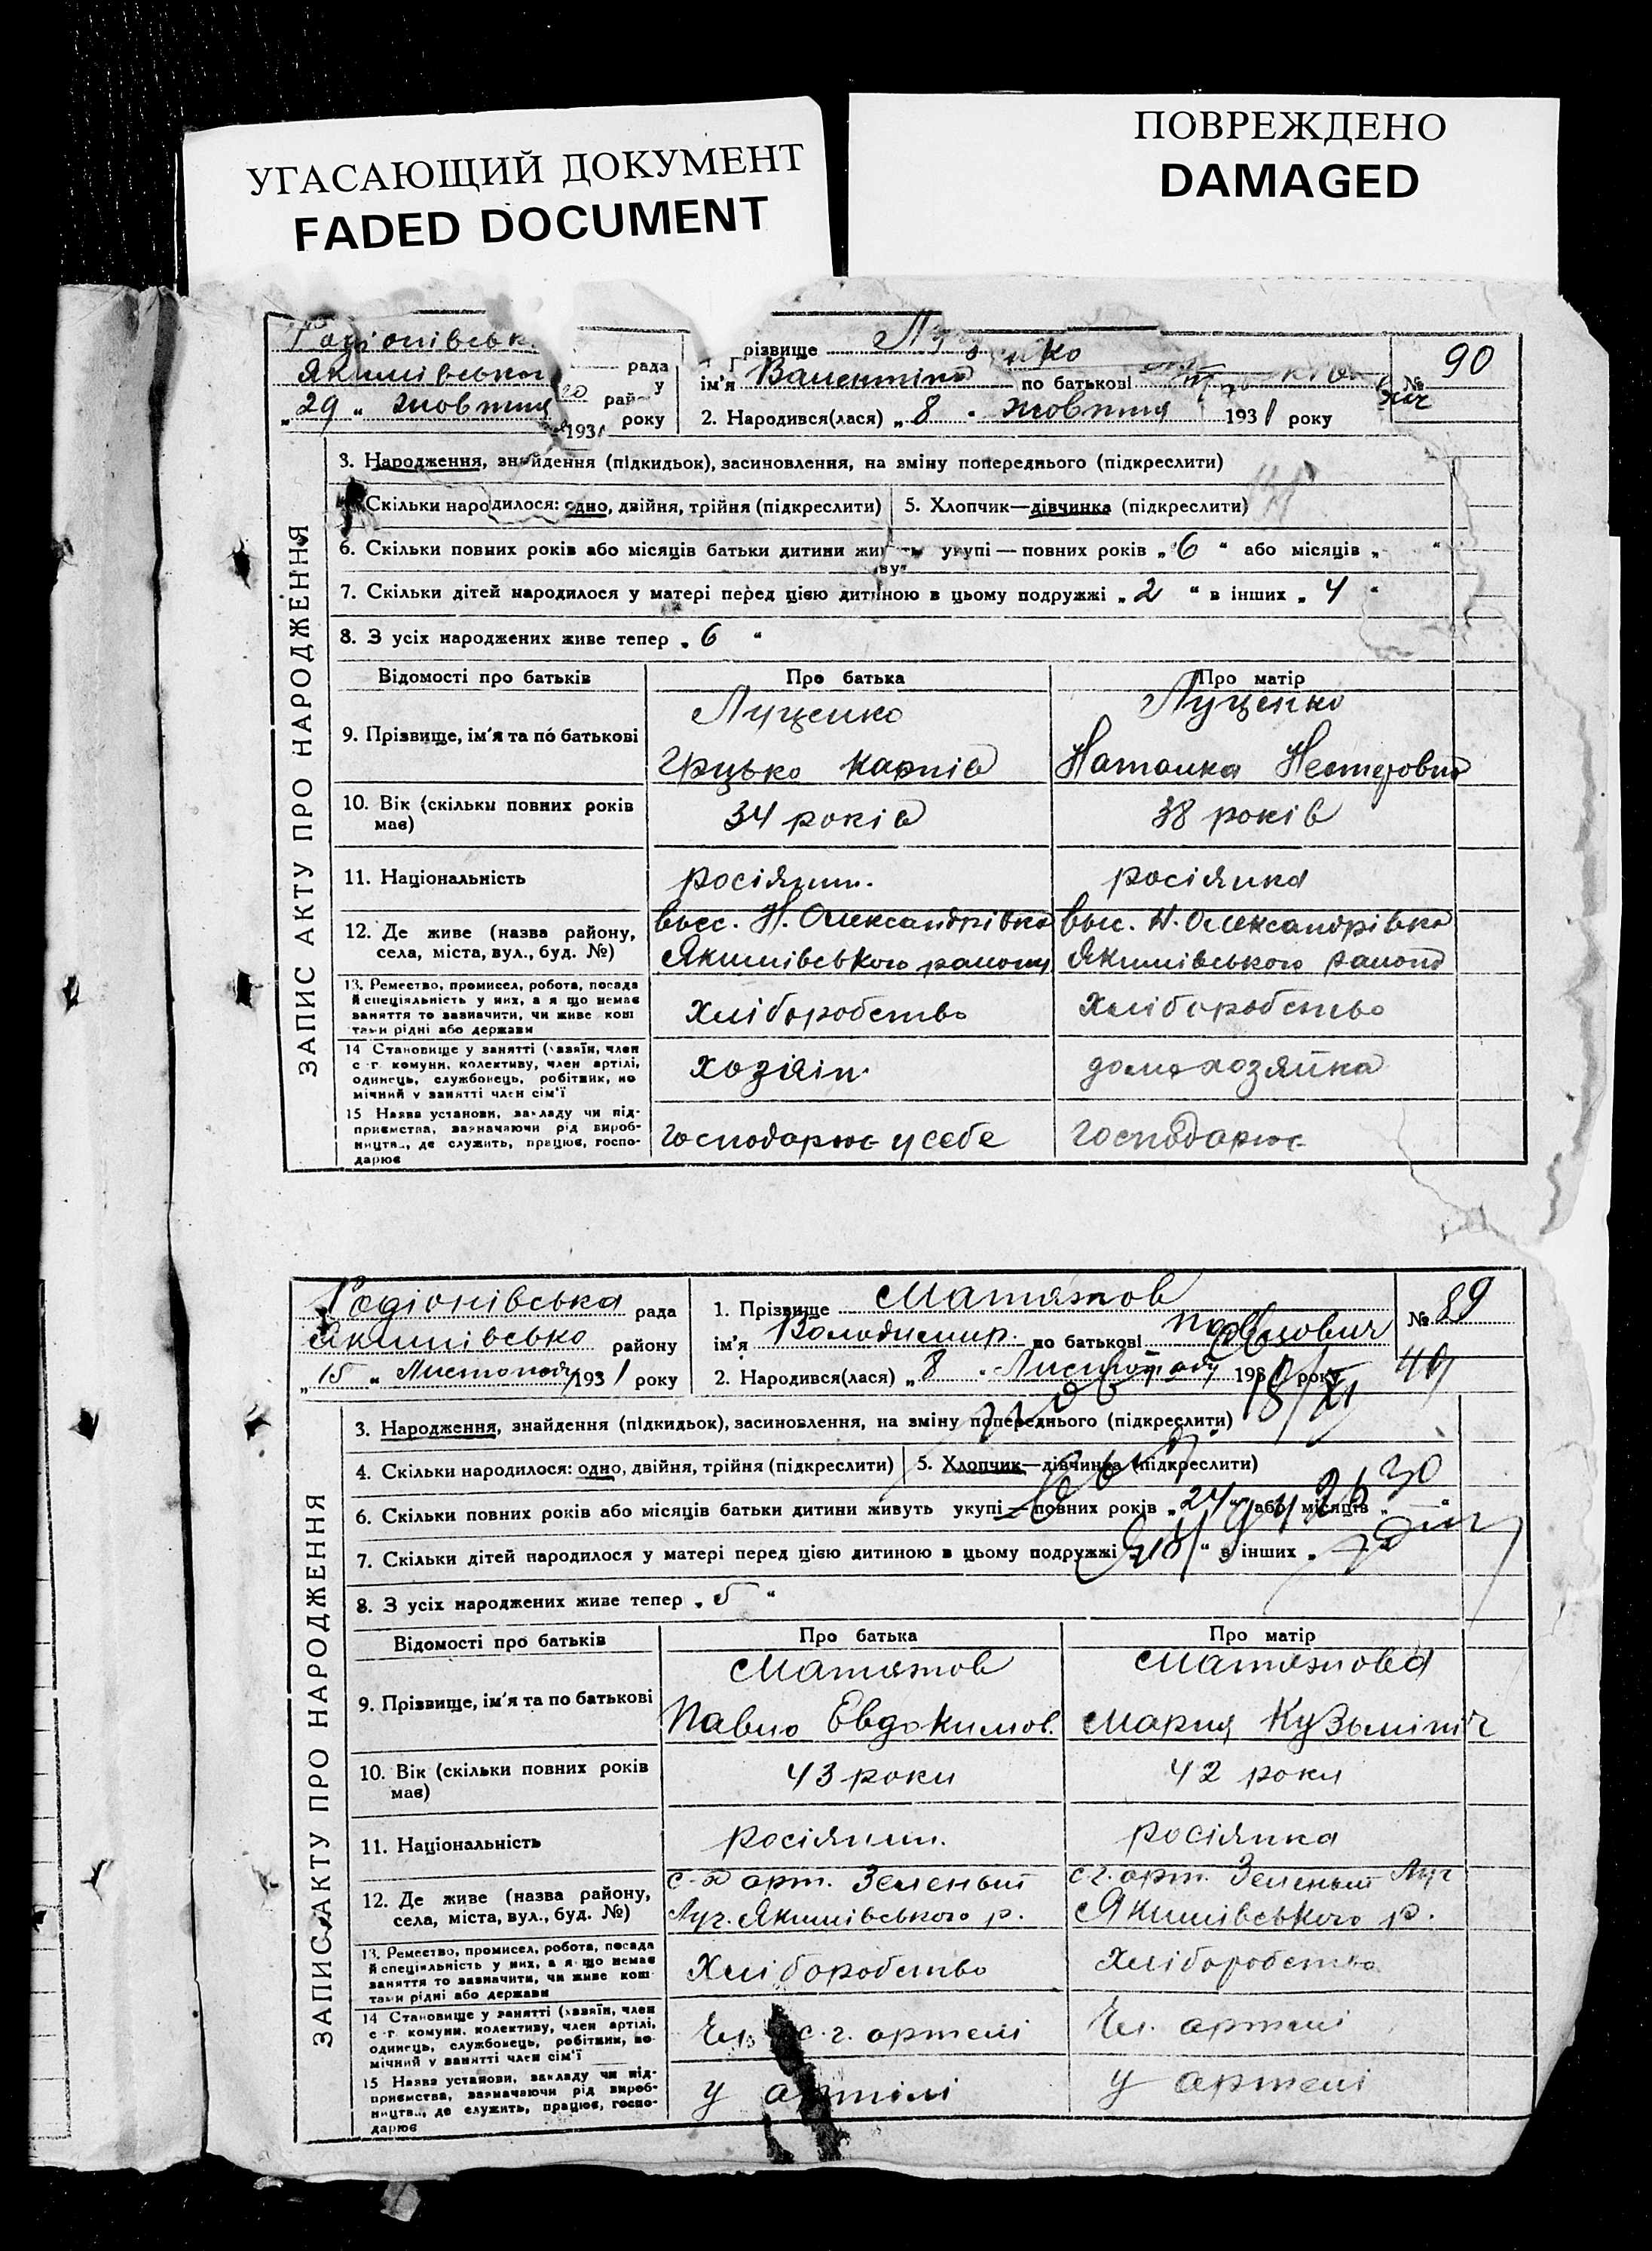 УГАСАЮЩИЙ ДОКУМЕНТ
FADED DOCUMENT
ПОВРЕЖДЕНО
DAMAGED
рада
Якимівськ
у
„29“ жовтня 1931 року
різвище
ім'я Валентина по батькові
2. Народився(лася) „8 “ жовтня 1931 року
№ 90
ЗАПИС АКТУ ПРО НАРОДЖЕННЯ
3. Народження, знайдення (підкидьок), засиновлення, на зміну попереднього (підкреслити)
Скільки народилося: одно, двійня, трійня (підкреслити)
5. Хлопчик—дівчинка (підкреслити)
6. Скільки повних років або місяців батьки дитини живуть укупі — повних років „ 6 “ або місяців „ “
7. Скільки дітей народилося у матері перед цією дитиною в цьому подружжі „ 2 “ в інших „ 4 “
8. З усіх народжених живе тепер „ 6 “
Відомості про батьків
Про батька
Про матір
9. Прізвище, ім'я та по батькові
Луценко
Грицько Карпів
Луценко
Наталка
10. Вік (скільки повних років
має)
34 років
38 років
11. Національність
росіянин.
росіянка
12. Де живе (назва району,
села, міста, вул., буд. №)
Н. Олександрівка
Якимівського району
Н. Олександрівка
Якимівського району
13. Ремество, промисел, робота, посада
й спеціяльність у них, а якщо немає
заняття то зазначити, чи живе кош
тами рідні або держави
хліборобство
хліборобство
14 Становище у занятті (хазяїн, член
с.-г. комуни, колективу, член артілі,
одинець, службовець, робітник, по
мічний у занятті член сім'ї
хозяїн
домохозяйка
15 Назва установи, закладу чи під-
приємства, зазначаючи рід вироб-
ництва, де служить, працює, госпо-
дарює
господарює у себе
господарює
Родіонівська рада
Якимівсько району
„15 “ Листопада 1931 року
1. Прізвище Матяжов
ім'я Володимир по батькові Павлович
2. Народився(лася) „8 “ Листопада 193 року
№ 89
ЗАПИС АКТУ ПРО НАРОДЖЕННЯ
3. Народження, знайдення (підкидьок), засиновлення, на зміну попереднього (підкреслити)
4. Скільки народилося: одно, двійня, трійня (підкреслити)
5. Хлопчик—дівчинка (підкреслити)
6. Скільки повних років або місяців батьки дитини живуть укупі — повних років „ 24 “ або місяців „ — “
7. Скільки дітей народилося у матері перед цією дитиною в цьому подружжі „ “ в інших „
8. З усіх народжених живе тепер „ 5 “
Відомості про батьків
Про батька
Про матір
9. Прізвище, ім'я та по батькові
Матяжов
Павло Евдокимов.
Матяжова
Мария
10. Вік (скільки повних років
має)
43 роки
42 роки
11. Національність
росіянин.
росіянка
12. Де живе (назва району,
села, міста, вул., буд. №)
арт. Зеленый
Луг. Якимівського р.
с.г. арт. Зеленый Луг
Якимівського р.
13. Ремество, промисел, робота, посада
й спеціяльність у них, а якщо немає
заняття то зазначити, чи живе кош
тами рідні або держави
Хліборобство
хліборобство
14 Становище у занятті (хазяїн, член
с.-г. комуни, колективу, член артілі,
одинець, службовець, робітник, по-
мічний у занятті член сім'ї
Чл. с.г. артелі
Чл. артелі
15 Назва установи, закладу чи під-
приємства, зазначаючи рід вироб-
ництва, де служить, працює, госпо-
дарює
у артілі
у артелі